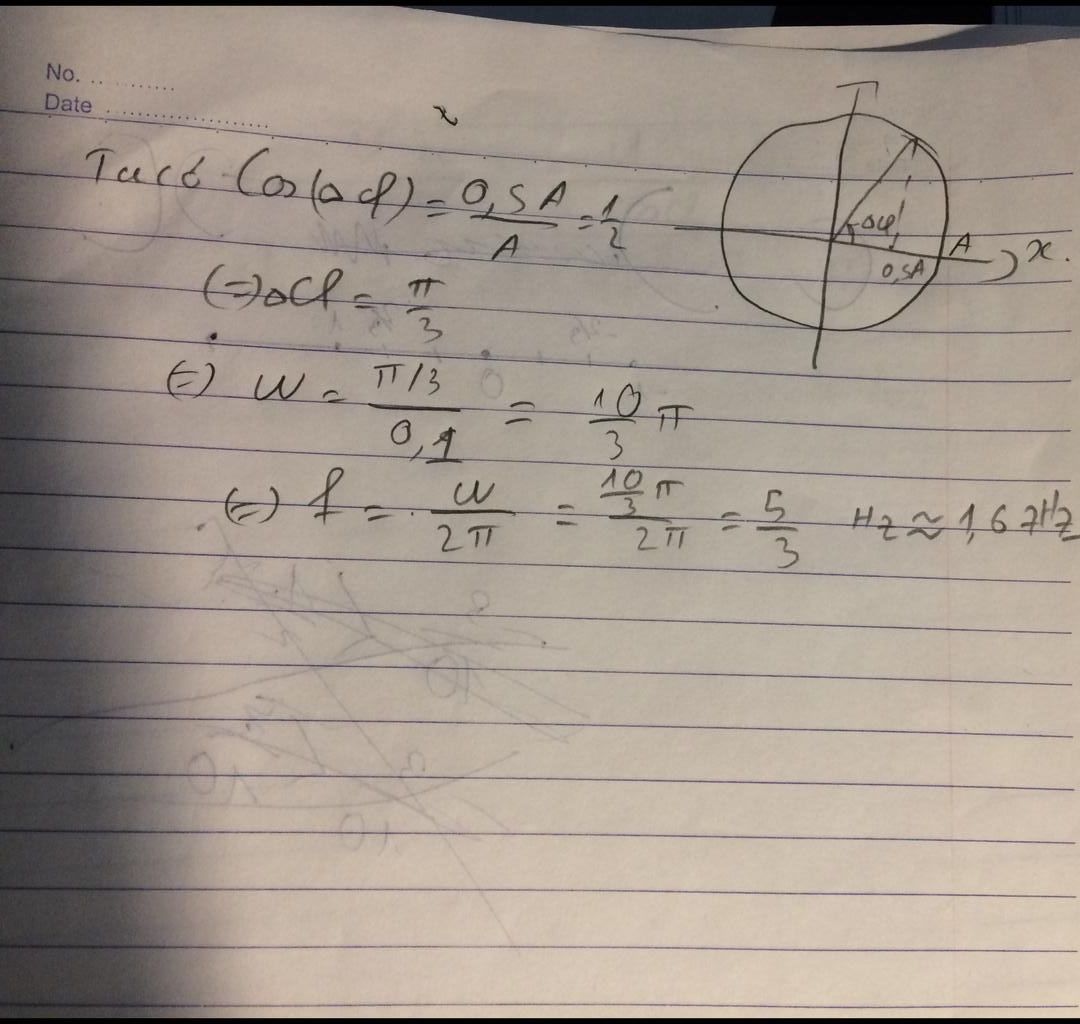 No. ............
Date ........................
x
Ta có Cos(Δφ) = 0,5A / A = 1/2
(=) Δφ = π/3
(=) ω = π/3 / 0,1 = 10/3 π
(=) f = ω / 2π = 10/3 π / 2π = 5/3 Hz ≈ 1,67Hz
Δφ
A
x.
0,5A